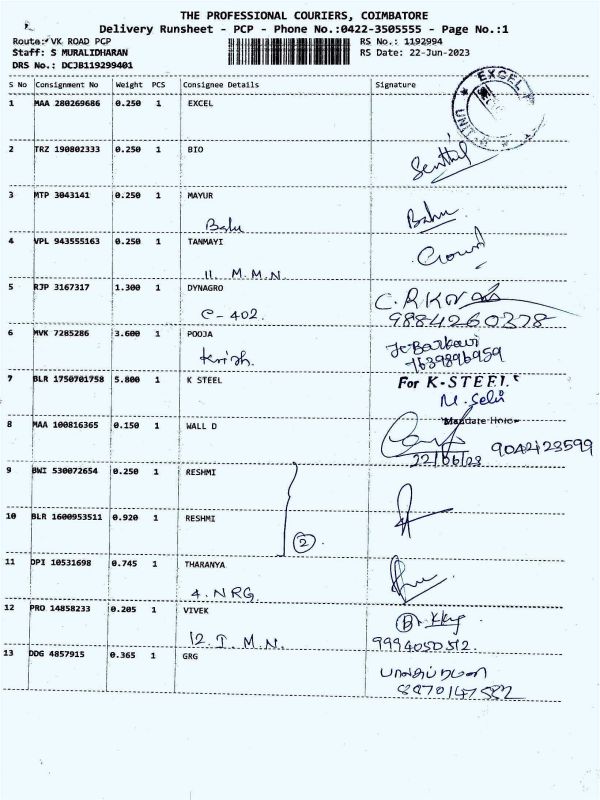 THE PROFESSIONAL COURIERS, COIMBATORE
Delivery Runsheet - PCP - Phone No.:0422-3505555 - Page No.:1
Route: VK ROAD PCP RS No.: 1192994
Staff: S MURALIDHARAN RS Date: 22-Jun-2023
DRS No.: DCJB119299401
S No Consignment No Weight PCS Consignee Details Signature
1 MAA 280269686 0.250 1 EXCEL
EXCEL
UNIT
2 TRZ 190802333 0.250 1 BIO
Senthil
3 MTP 3043141 0.250 1 MAYUR
Balu Balu
4 VPL 943555163 0.250 1 TANMAYI
11. M.M.N
5 RJP 3167317 1.300 1 DYNAGRO
C-402. 9884260378
6 MVK 7285286 3.600 1 POOJA
7639896959
7 BLR 1750701758 5.800 1 K STEEL For K-STEEL
M. Selvi
8 MAA 100816365 0.150 1 WALL D
22/06/23 9042123599
9 BWI 530072654 0.250 1 RESHMI
10 BLR 1600953511 0.920 1 RESHMI
2
11 DPI 10531698 0.745 1 THARANYA
4. NRG.
12 PRO 14858233 0.205 1 VIVEK
12. I. M.N. 9994050512.
13 DDG 4857915 0.365 1 GRG